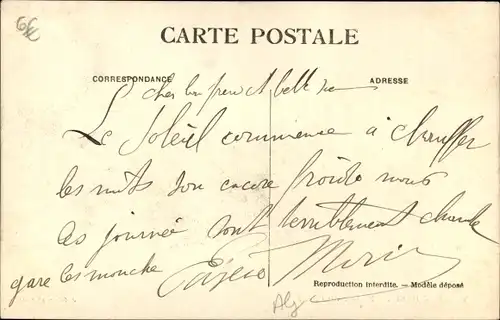 6€
CARTE POSTALE
CORRESPONDANCE
ADRESSE
cher
Le Soleil commence à chauffer
les nuits son encore froide mais
les journée sont terriblement chaude
gare les mouche
Reproduction interdite. — Modèle déposé
Alg